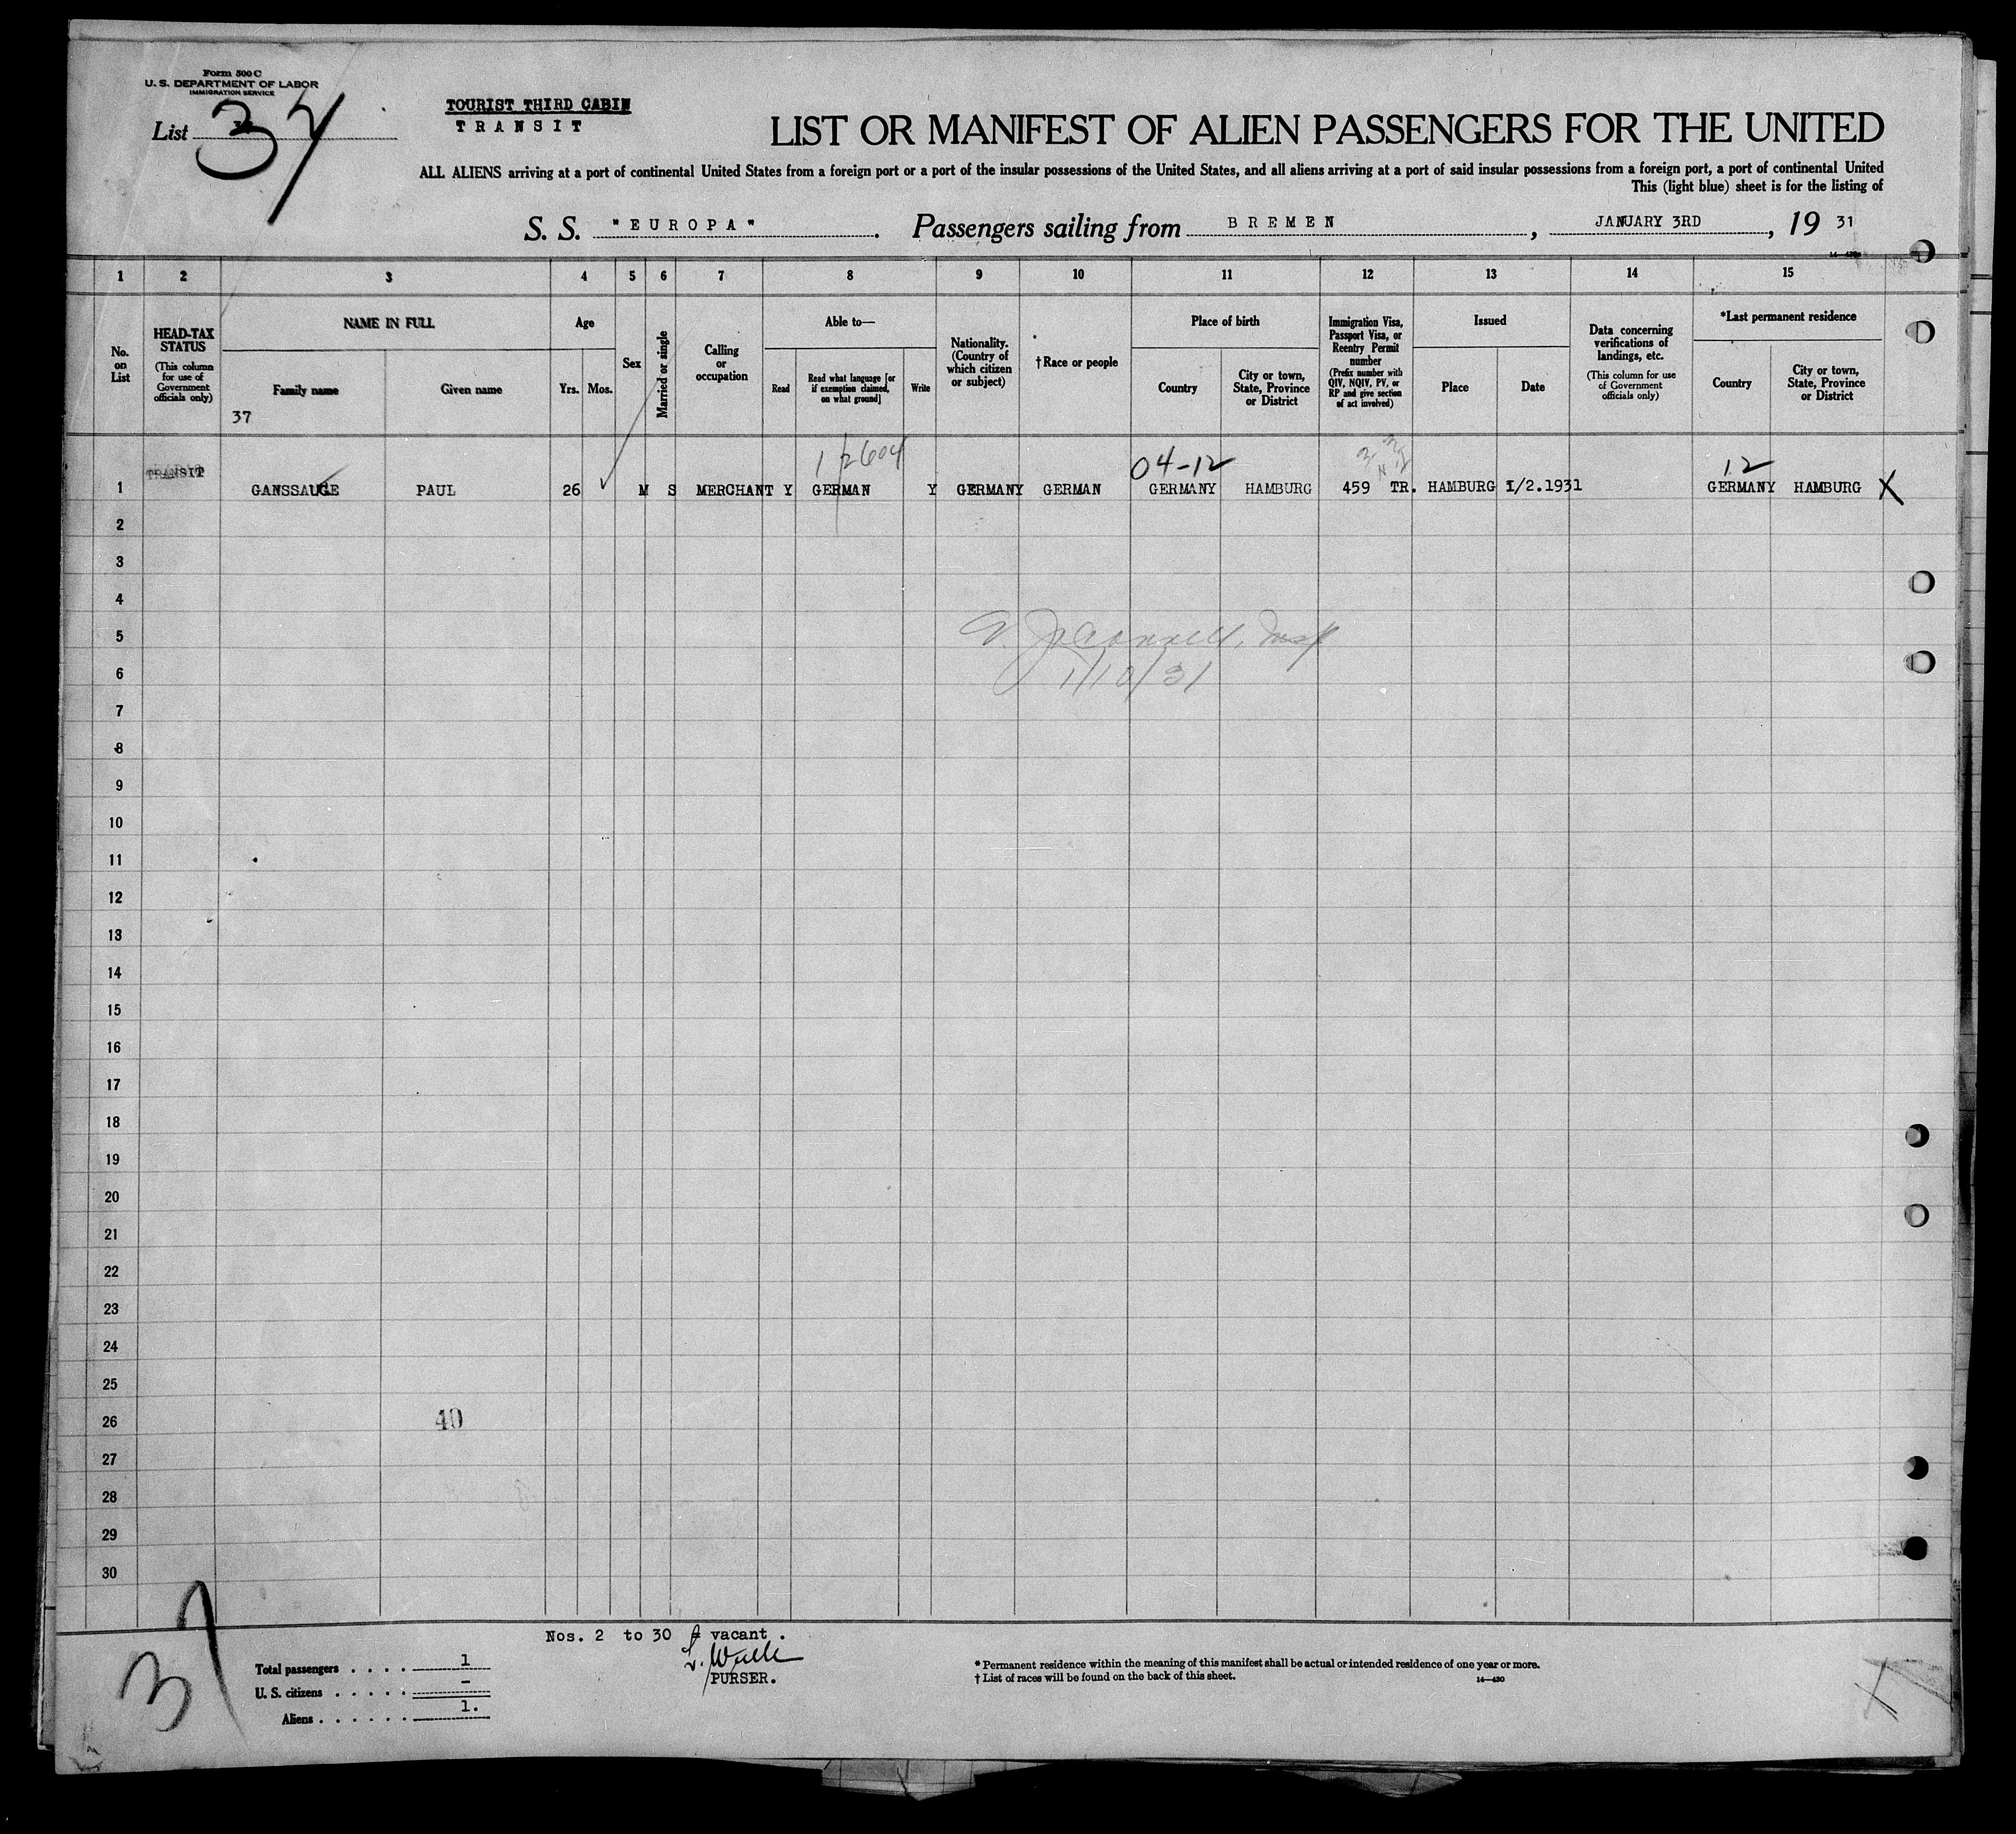 Form 500 C
U. S. DEPARTMENT OF LABOR
IMMIGRATION SERVICE
List 37
TOURIST THIRD CABIN
TRANSIT
LIST OR MANIFEST OF ALIEN PASSENGERS FOR THE UNITED
ALL ALIENS arriving at a port of continental United States from a foreign port or a port of the insular possessions of the United States, and all aliens arriving at a port of said insular possessions from a foreign port, a port of continental United
This (light blue) sheet is for the listing of
S. S. "EUROPA". Passengers sailing from BREMEN, JANUARY 3RD, 19 31
1 2 3 4 5 6 7 8 9 10 11 12 13 14 15
No. on List
HEAD-TAX STATUS (This column for use of Government officials only)
NAME IN FULL
Family name
Given name
37
Age
Yrs. Mos.
Sex
Married or single
Calling or occupation
Able to—
Read
Read what language [or if exemption claimed, on what ground]
Write
Nationality. (Country of which citizen or subject)
† Race or people
Place of birth
Country
City or town, State, Province or District
Immigration Visa, Passport Visa, or Reentry Permit number (Prefix number with QIV, NQIV, PV, or RP and give section of act involved)
Issued
Place
Date
Data concerning verifications of landings, etc. (This column for use of Government officials only)
*Last permanent residence
Country
City or town, State, Province or District
04-12
12
TRANSIT
1 GANSSAUGE PAUL 26 M S MERCHANT Y GERMAN Y GERMANY GERMAN GERMANY HAMBURG 459 TR. HAMBURG 1/2.1931 GERMANY HAMBURG X
2
3
4
5
6
1/10/31
7
8
9
10
11
12
13
14
15
16
17
18
19
20
21
22
23
24
25
26 40
27
28
29
30
Nos. 2 to 30 vacant.
PURSER.
37
Total passengers . . . . 1
U. S. citizens . . . . . -
Aliens . . . . . . 1.
* Permanent residence within the meaning of this manifest shall be actual or intended residence of one year or more.
† List of races will be found on the back of this sheet.
14—430